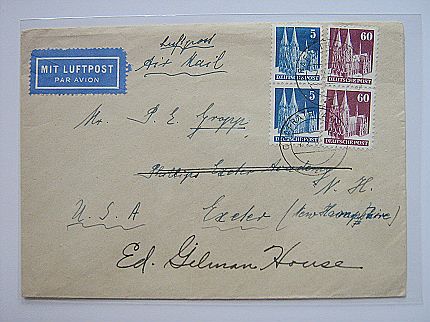 MIT LUFTPOST
PAR AVION
Luftpost
Air Mail
5
60
DEUTSCHE POST
DEUTSCHE POST
5
60
DEUTSCHE POST
DEUTSCHE POST
Mr. P. E. Gropp
Phillips Exeter Academy
N. H.
U. S. A
Exeter (New Hampshire)
Ed. Gilman House